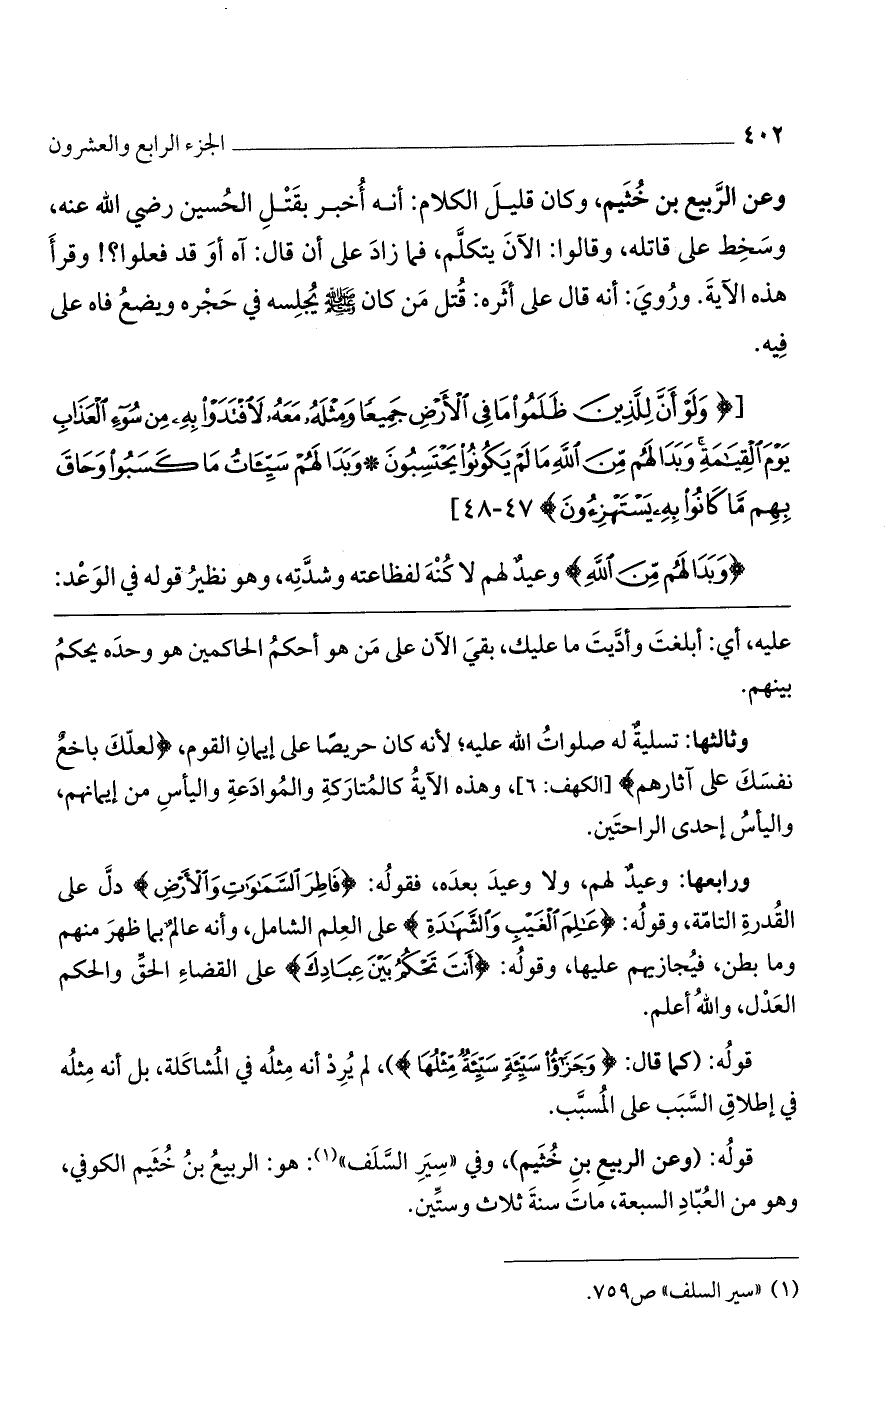 ٤٠٢ الجزء الرابع والعشرون
وعن الرَّبيع بن خُثَيم، وكان قليلَ الكلام: أنه أُخبر بقَتْلِ الحُسين رضي الله عنه،
وسَخِط على قاتله، وقالوا: الآنَ يتكلَّم، فما زادَ على أن قال: آه أوَ قد فعلوا؟! وقرأَ
هذه الآيةَ. ورُويَ: أنه قال على أثَره: قُتل مَن كان ﷺ يُجلِسه في حَجْره ويضعُ فاه على
فِيه.
[﴿ وَلَوْ أَنَّ لِلَّذِينَ ظَلَمُواْ مَا فِى ٱلْأَرْضِ جَمِيعًا وَمِثْلَهُۥ مَعَهُۥ لَٱفْتَدَوْاْ بِهِۦ مِن سُوٓءِ ٱلْعَذَابِ
يَوْمَ ٱلْقِيَٰمَةِۚ وَبَدَا لَهُم مِّنَ ٱللَّهِ مَا لَمْ يَكُونُواْ يَحْتَسِبُونَ * وَبَدَا لَهُمْ سَيِّـَٔاتُ مَا كَسَبُواْ وَحَاقَ
بِهِم مَّا كَانُواْ بِهِۦ يَسْتَهْزِءُونَ ﴾ ٤٧-٤٨]
﴿وَبَدَا لَهُم مِّنَ ٱللَّهِ﴾ وعيدٌ لهم لا كُنْهَ لفظاعته وشدَّتِه، وهو نظيرُ قوله في الوَعْد:
عليه، أي: أبلغتَ وأدَّيتَ ما عليك، بقيَ الآن على مَن هو أحكمُ الحاكمين هو وحدَه يحكمُ
بينهم.
وثالثها: تسليةٌ له صلواتُ الله عليه؛ لأنه كان حريصًا على إيمانِ القوم، ﴿لعلّكَ باخعٌ
نفسَكَ على آثارهم﴾ [الكهف: ٦]، وهذه الآيةُ كالمُتارَكةِ والمُوادَعةِ واليأسِ من إيمانهم،
واليأسُ إحدى الراحتَين.
ورابعها: وعيدٌ لهم، ولا وعيدَ بعدَه، فقولُه: ﴿فَاطِرَ ٱلسَّمَٰوَٰتِ وَٱلْأَرْضِ﴾ دلَّ على
القُدرةِ التامّة، وقولُه: ﴿عَٰلِمَ ٱلْغَيْبِ وَٱلشَّهَٰدَةِ﴾ على العِلم الشامل، وأنه عالمٌ بما ظهرَ منهم
وما بطن، فيُجازيهم عليها، وقولُه: ﴿أَنتَ تَحْكُمُ بَيْنَ عِبَادِكَ﴾ على القضاءِ الحقِّ والحكم
العَدْل، واللهُ أعلم.
قولُه: (كما قال: ﴿ وَجَزَٰٓؤُاْ سَيِّئَةٍ سَيِّئَةٌ مِّثْلُهَا ﴾)، لم يُرِدْ أنه مِثلُه في المُشاكَلة، بل أنه مِثلُه
في إطلاقِ السَّبَب على المُسبَّب.
قولُه: (وعن الربيعِ بنِ خُثَيم)، وفي «سِيَرِ السَّلَف»(١): هو: الربيعُ بنُ خُثَيم الكوفي،
وهو من العُبّادِ السبعة، ماتَ سنةَ ثلاث وستِّين.
(١) «سير السلف» ص٧٥٩.